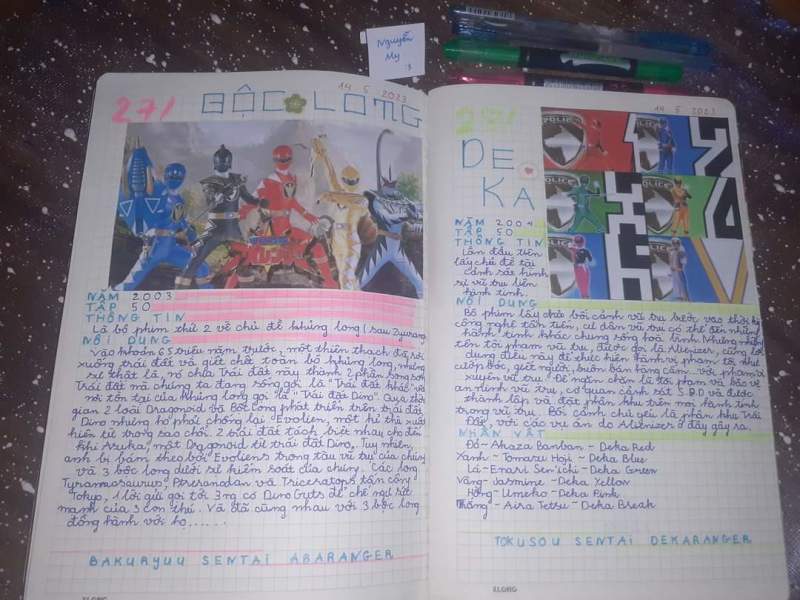 Nguyễn
My
3
271
BỘC LONG
14 5 2023
NĂM 2003
TẬP 50
THÔNG TIN
Là bộ phim thứ 2 về chủ đề khủng long (sau Zyuranger
NỘI DUNG
Vào khoảng 65 triệu năm trước, một thiên thạch đã rơi
xuống trái đất và giết chết toàn bộ khủng long, nhưng
sự thật là, nó chia Trái đất này thành 2 phần song song
Trái đất mà chúng ta đang sống gọi là "Trái đất khác" và
nơi tồn tại của khủng long gọi là "Trái đất Dino". Qua thời
gian 2 loài Dragonoid và Bộc Long phát triển trên trái đất
Dino nhưng họ phải chống lại Evolien, một kẻ thù xuất
hiện từ trong sao chổi. 2 trái đất tách biệt nhau cho đến
khi Asuka, một Dragonoid từ trái đất Dino, Tuy nhiên
anh bị bám theo bởi Evoliens trong tàu vũ trụ của chúng
và 3 bộc long dưới sự kiểm soát của chúng. Các long
Tyrannosaurus, Pteranodon và Triceratops tấn công
Tokyo, 1 lời gửi gọi tới 3 ng có Dino Guts để chế ngự sức
mạnh của 3 con thú. Và đối cùng nhau với 3 bộc long
đồng hành với họ......
BAKURYUU SENTAI ABARANGER
ELONG
14 5 2023
271
DE
KA
POLICE
POLICE
POLICE
POLICE
POLICE
POLICE
NĂM 2004
TẬP 50
THÔNG TIN
Lần đầu tiên
lấy chủ đề tài
cảnh sát hình
sự vũ trụ liên
hành tinh.
NỘI DUNG
Bộ phim lấy chủ bối cảnh vũ trụ bước vào thời kỳ
công nghệ tân tiến, cư dân vũ trụ có thể đến những
hành tinh khác chung sống hoà bình. Nhưng những
tên tội phạm vũ trụ, được gọi là Alienizer, cũng lợi
dụng điều này để thực hiện hành vi phạm tội như
cướp bóc, giết người, buôn bán hàng cấm.. với phạm vi
xuyên vũ trụ. Để ngăn chặn lũ tội phạm và bảo vệ
an bình vũ trụ, cơ quan cảnh sát S.P.D và được
thành lập và đặt phân khu trên mọi hành tinh
trong vũ trụ. Bối cảnh chủ yếu là phân khu Trái
Đất, với các vụ án do Alienizer ở đây gây ra.
NHÂN VẬT
Đỏ - Akaza Banban - Deka Red
Xanh - Tomasu Hoji - Deka Blue
Lá - Enari Sen'ichi - Deka Green
Vàng - Jasmine - Deka Yellow
Hồng - Umeko - Deka Pink
Trắng - Aira Tetsu - Deka Break
TOKUSOU SENTAI DEKARANGER
ELONG